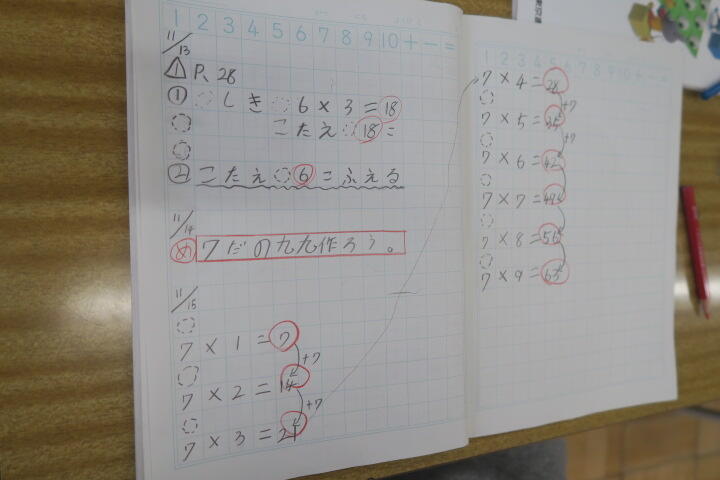 1 2 3 4 5 6 7 8 9 10 + − =
11/13
1 P.28
① しき 6 × 3 = 18
こたえ 18こ
② こたえ 6こふえる
11/14
め 7だの九九作ろう。
11/15
7 × 1 = 7
+7
7 × 2 = 14
+7
7 × 3 = 21
1 2 3 4 5 6 7 8 9 10 + − =
7 × 4 = 28
+7
7 × 5 = 35
+7
7 × 6 = 42
7 × 7 = 49
7 × 8 = 56
7 × 9 = 63